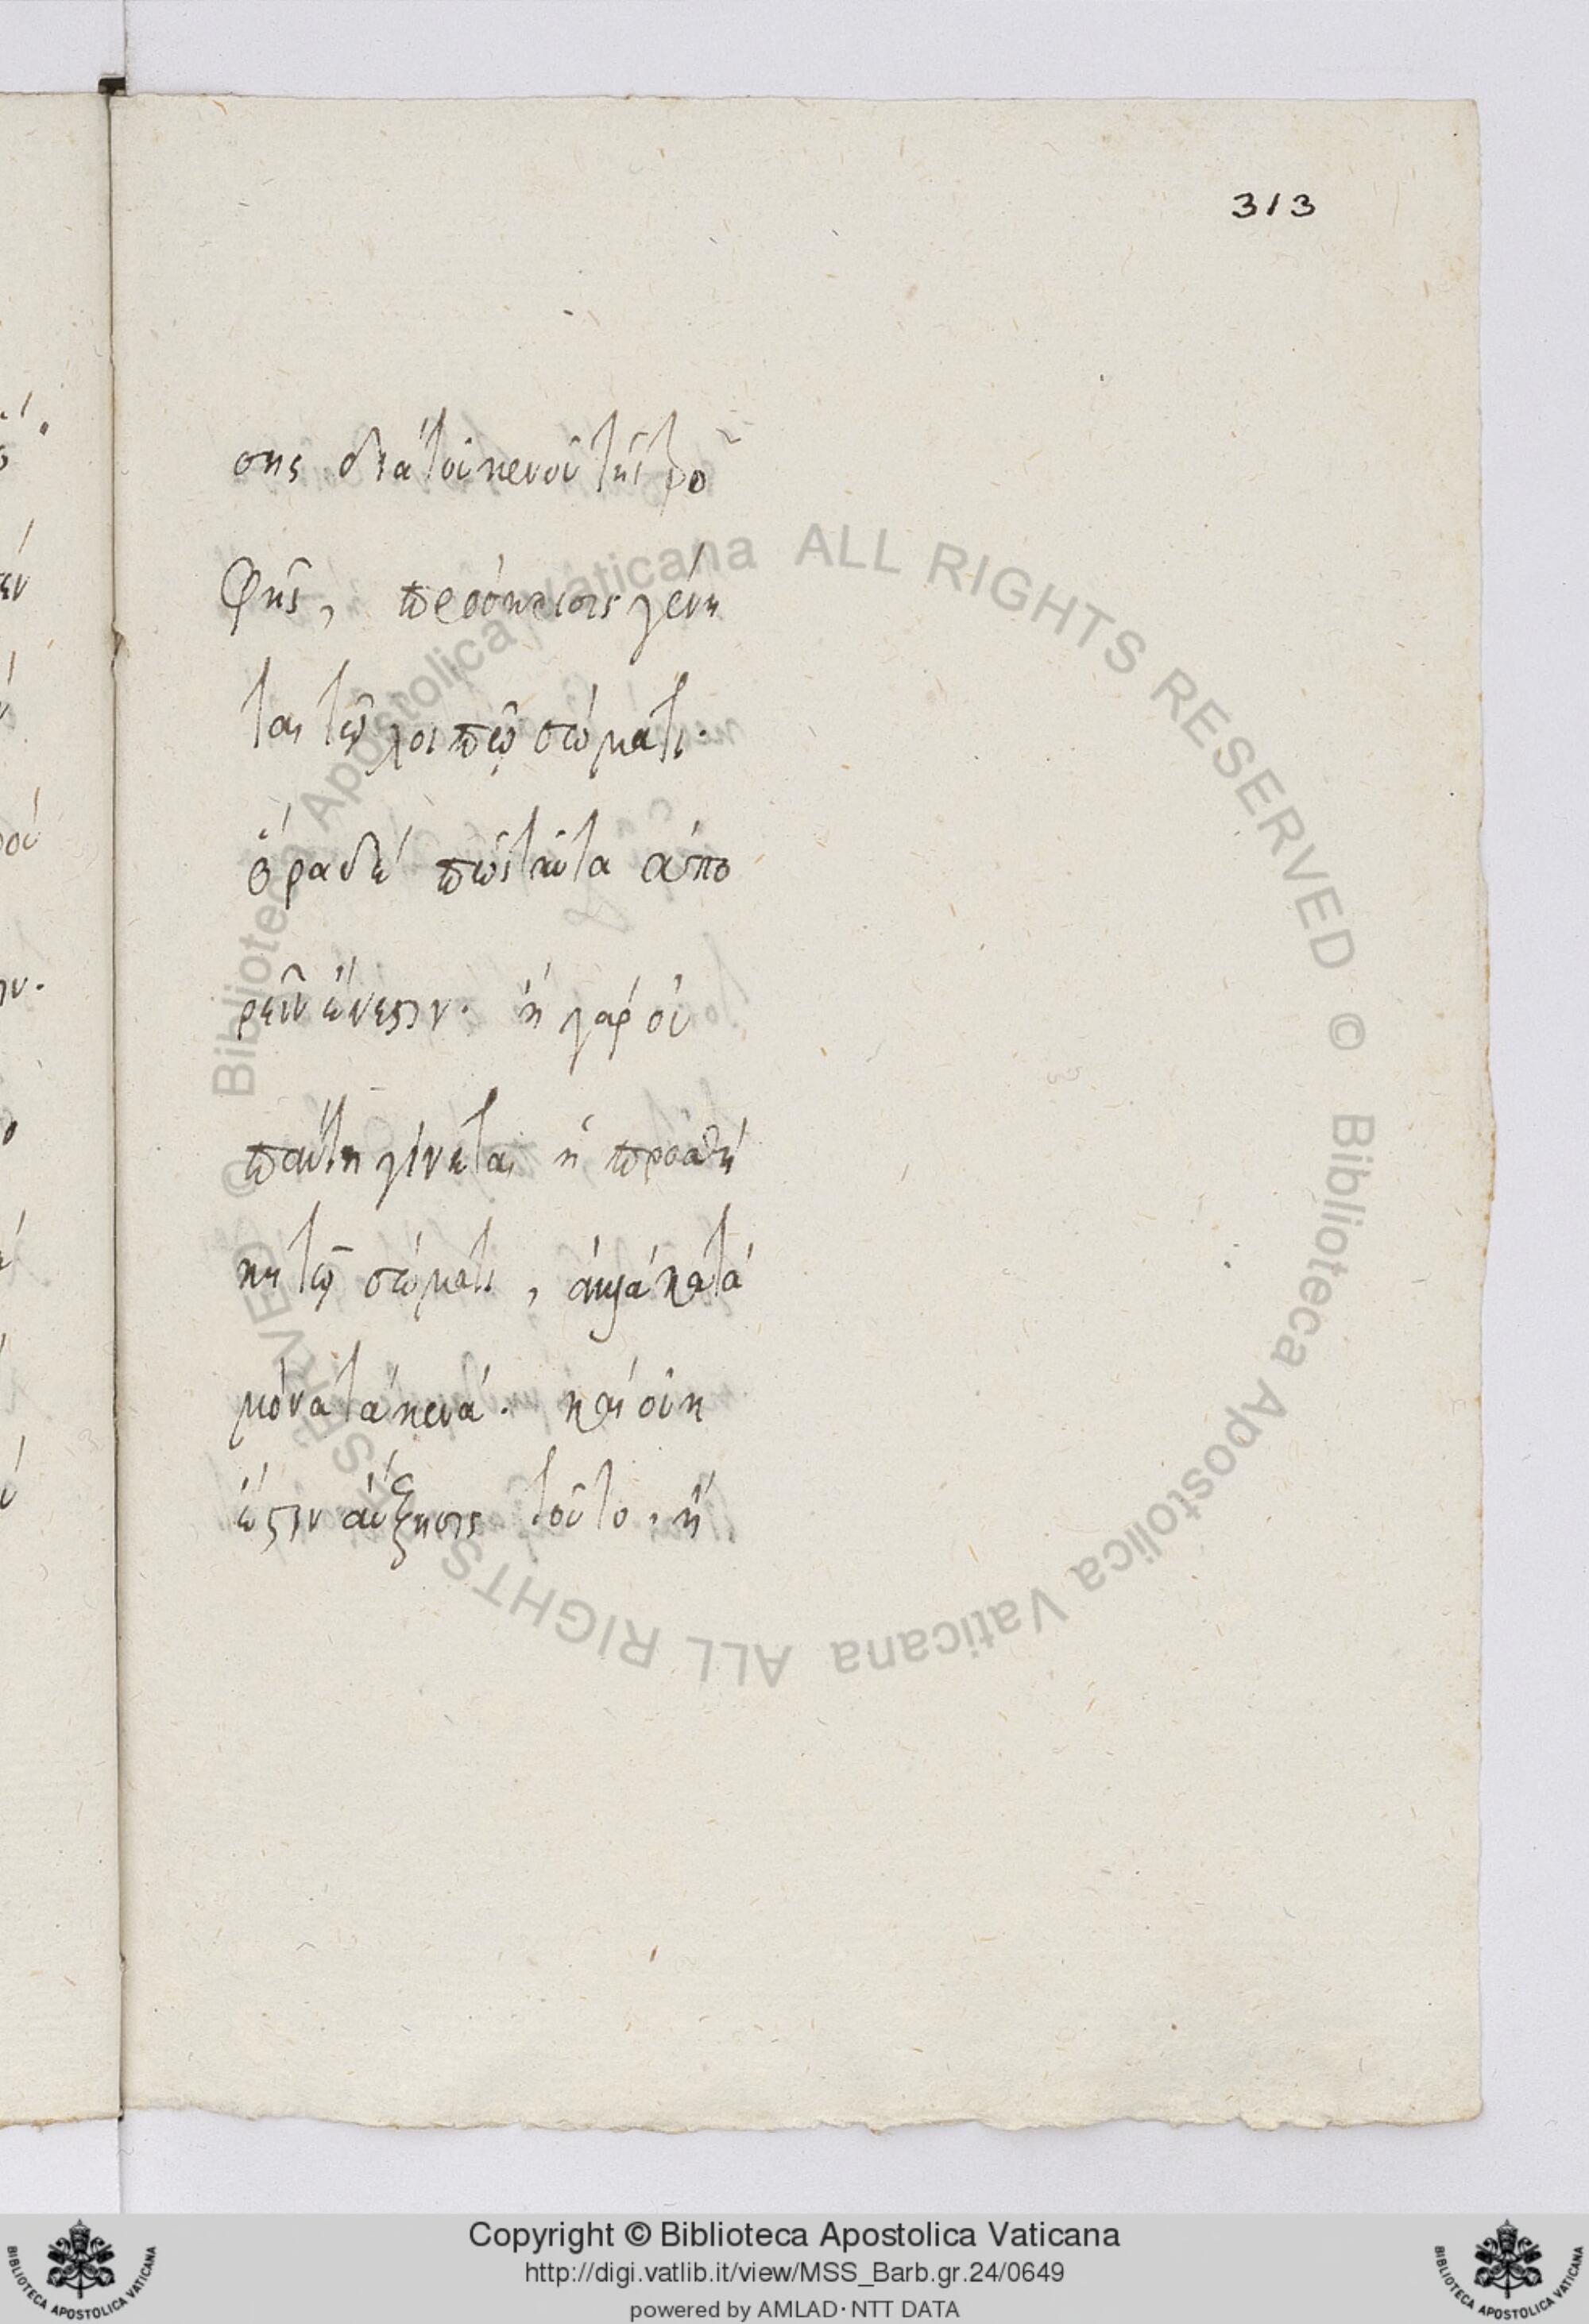 313
σης διὰ τοῦ κενοῦ τῆς τρο
φῆς, πρόσκρισις γένη
ται τῷ λοιπῷ σώματι.
ὅρα δὲ πῶς ταῦτα ἀπο
ρεῖν ἔνεστιν. ἢ γὰρ οὐ
πάντη γίνεται ἡ προσθή
κη τῷ σώματι, ἀλλὰ κατὰ
μόνα τὰ κενά. καὶ οὐκ
ἔστιν αὔξησις τοῦτο. ἢ
Biblioteca Apostolica Vaticana ALL RIGHTS RESERVED ©
Biblioteca Apostolica Vaticana ALL RIGHTS RESERVED ©
Copyright © Biblioteca Apostolica Vaticana
http://digi.vatlib.it/view/MSS_Barb.gr.24/0649
powered by AMLAD · NTT DATA
BIBLIOTECA APOSTOLICA VATICANA
BIBLIOTECA APOSTOLICA VATICANA